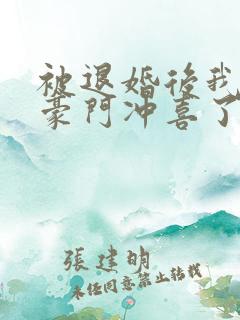 被退婚後我
豪門沖喜了
張建明
未经同意禁止转载